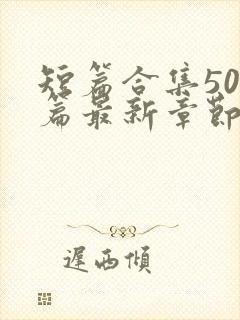 短篇合集50
篇最新章節
遲西傾